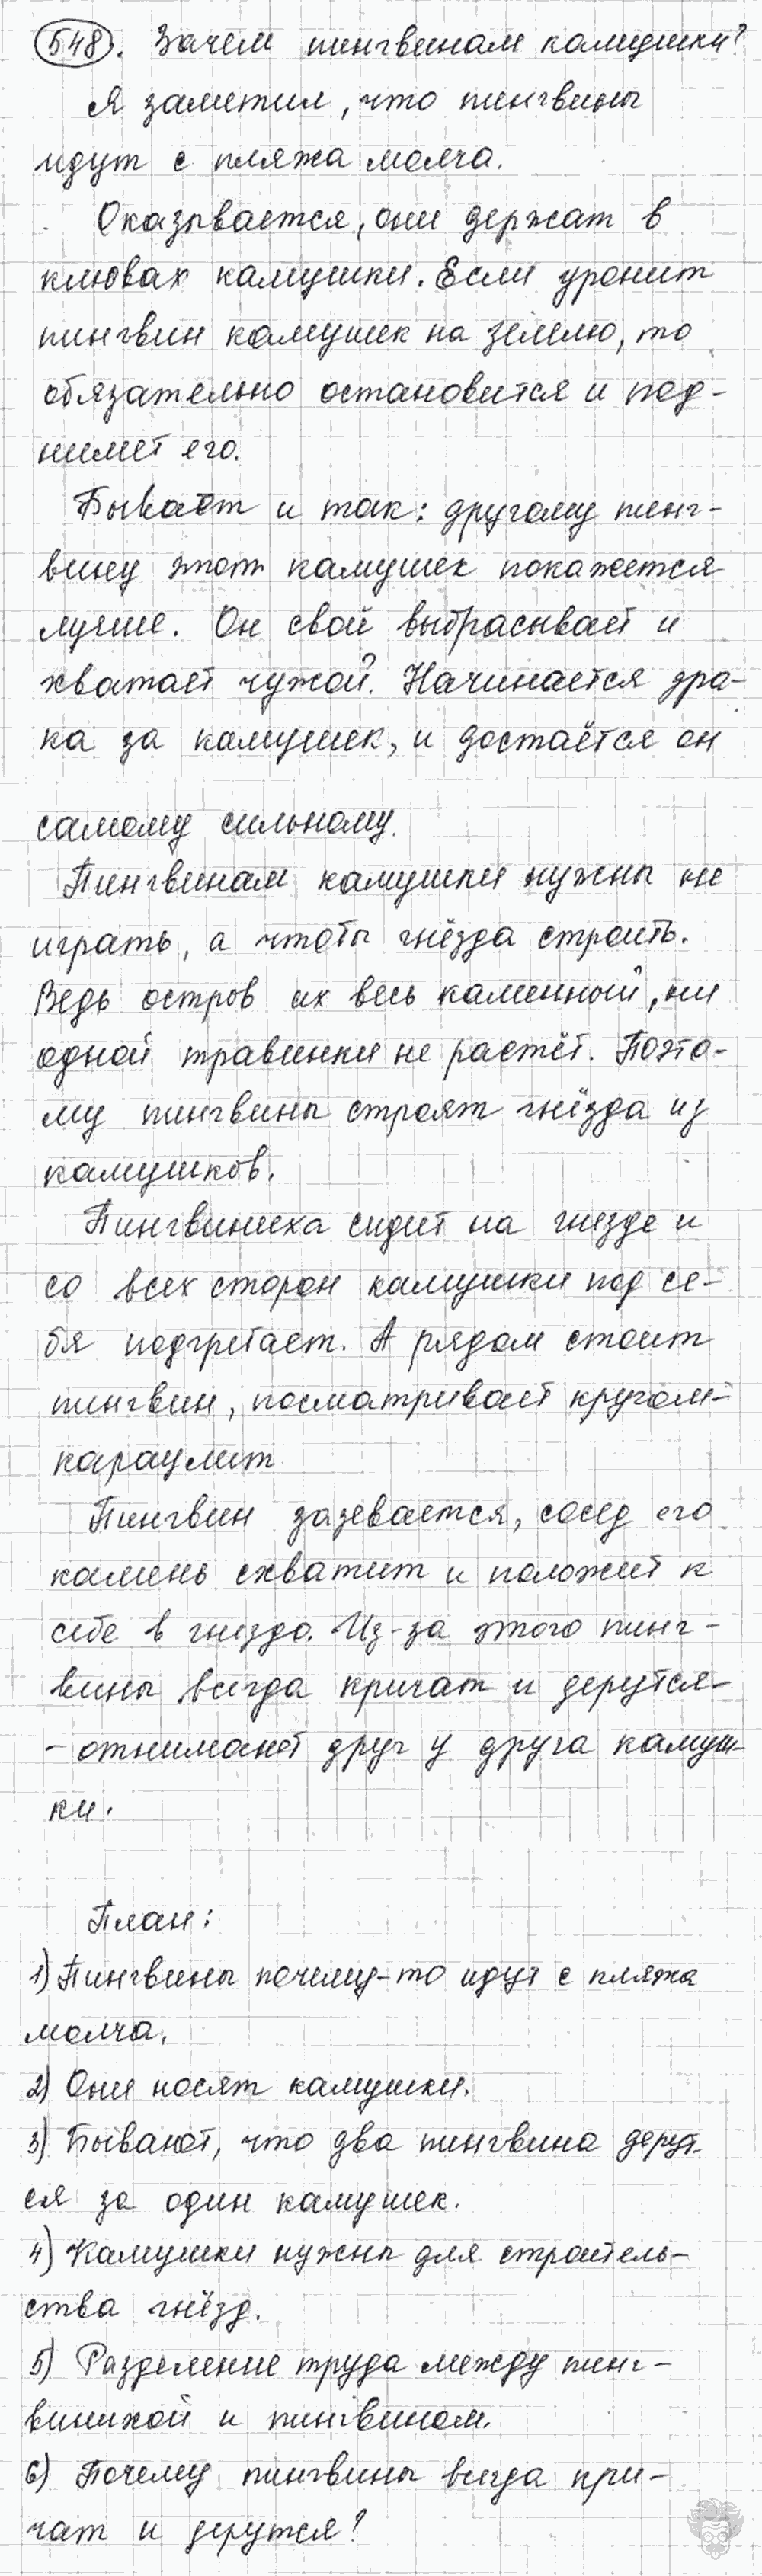 548. Зачем пингвинам камушки?
Я заметил, что пингвины
идут с пляжа молча.
Оказывается, они держат в
клювах камушки. Если уронит
пингвин камушек на землю, то
обязательно остановится и под-
нимет его.
Бывает и так: другому пинг-
вину этот камушек покажется
лучше. Он свой выбрасывает и
хватает чужой. Начинается дра-
ка за камушек, и достаётся он
самому сильному.
Пингвинам камушки нужны не
играть, а чтобы гнёзда строить.
Ведь остров их весь каменный, ни
одной травинки не растёт. Поэто-
му пингвины строят гнёзда из
камушков.
Пингвиниха сидит на гнезде и
со всех сторон камушки под се-
бя подгребает. А рядом стоит
пингвин, посматривает кругом-
караулит.
Пингвин зазевается, сосед его
камень схватит и положит к
себе в гнездо. Из-за этого пинг-
вины всегда кричат и дерутся-
- отнимают друг у друга камуш-
ки.
План:
1) Пингвины почему-то идут с пляжа
молча.
2) Они носят камушки.
3) Бывают, что два пингвина дерут-
ся за один камушек.
4) Камушки нужны для строитель-
ства гнёзд.
5) Разделение труда между пинг-
винихой и пингвином.
6) Почему пингвины всегда кри-
чат и дерутся?